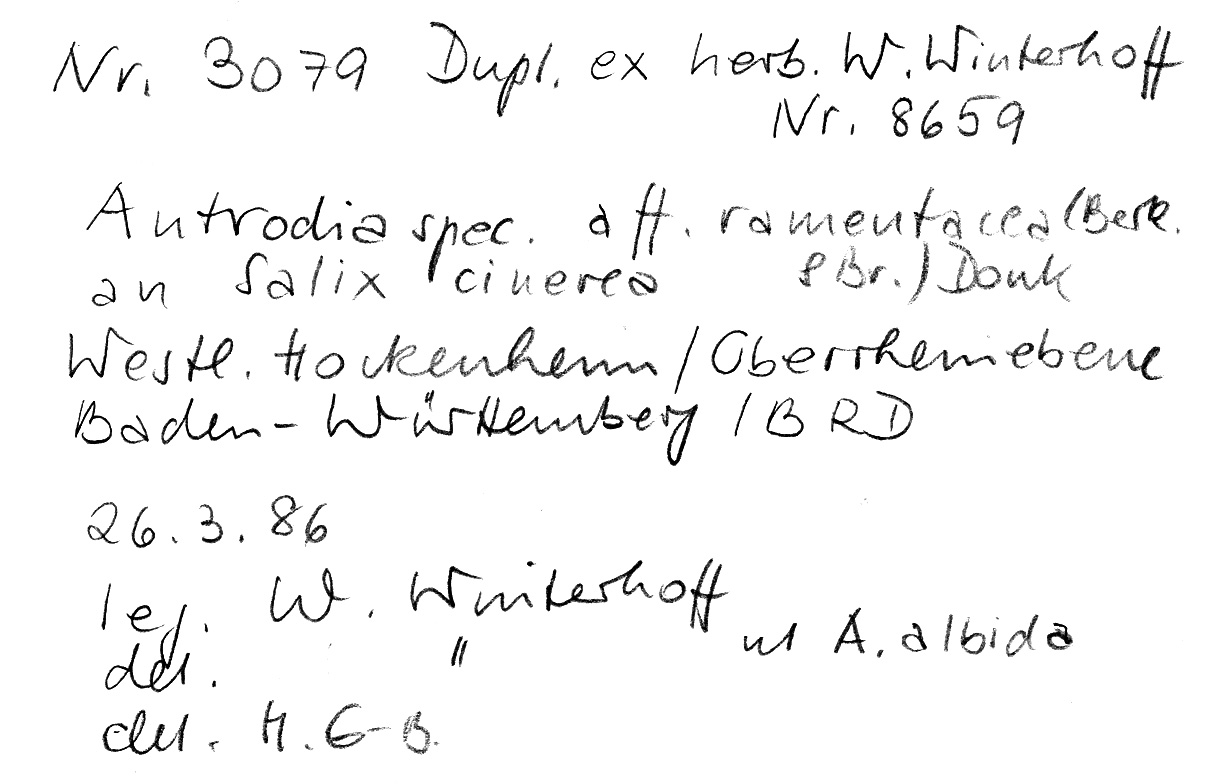 Nr. 3079 Dupl. ex herb. W. Winterhoff
Nr. 8659
Antrodia spec. aff. ramentacea (Berk.
an Salix cinerea & Br.) Donk
Westl. Hockenheim / Oberrheinebene
Baden-Württemberg / BRD
26.3.86
leg. W. Winterhoff
det. " ut A. albida
det. H. G-B.